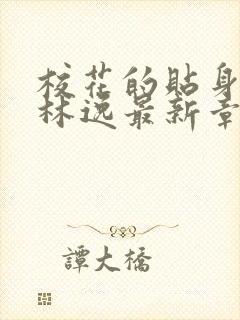 校花的貼身
林逸最新章
譚大橋